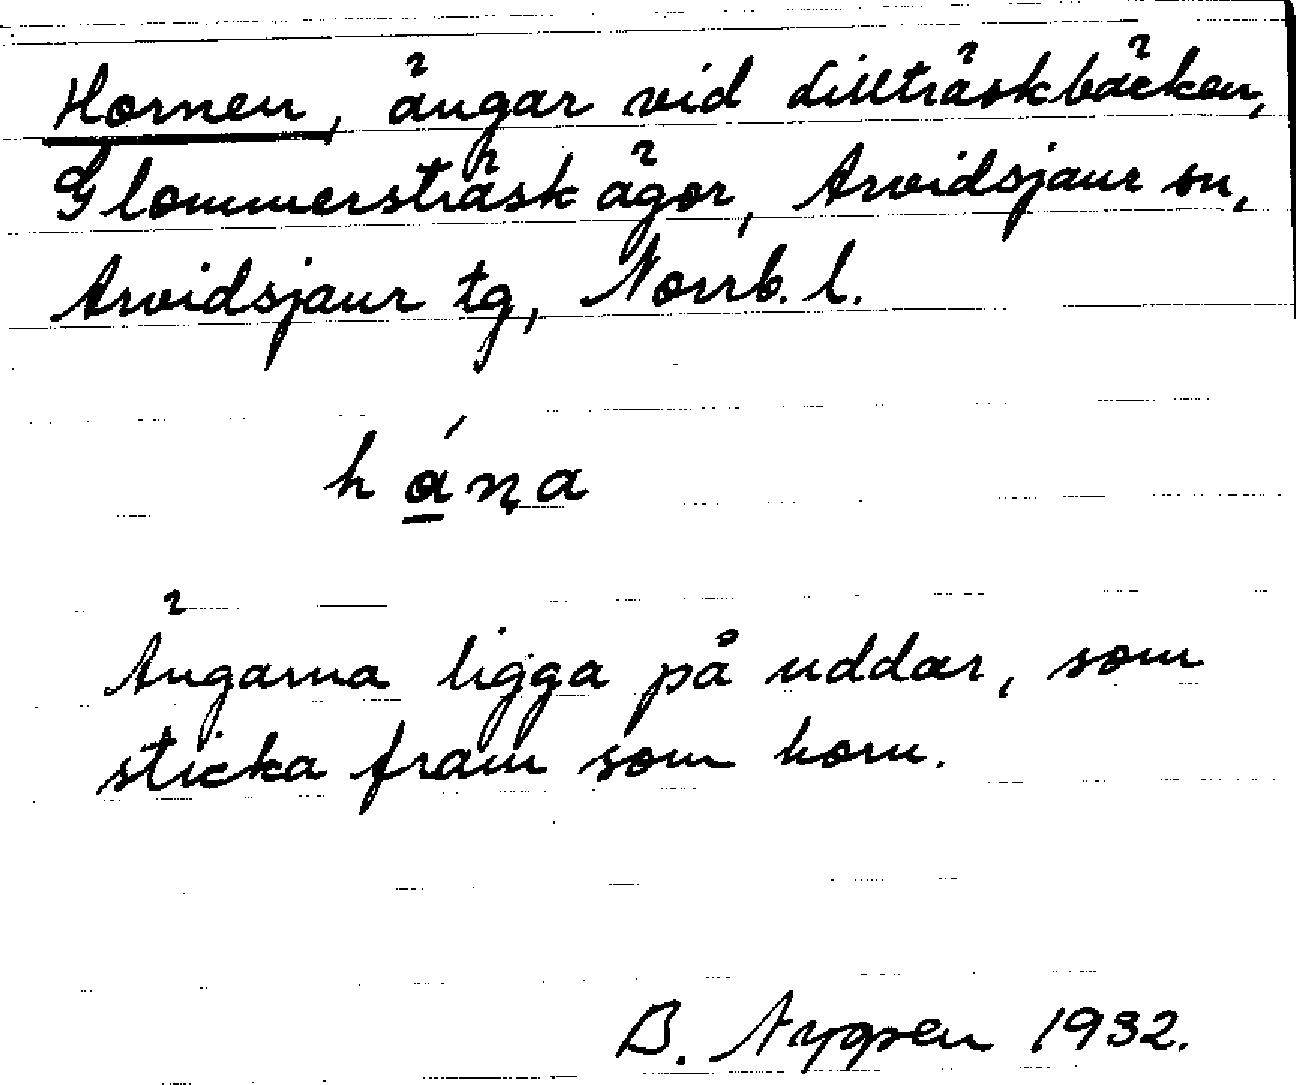 Hornen, ängar vid Lillträskbäcken,
Glommersträsk ägor, Arvidsjaur sn,
Arvidsjaur tg, Norrb. l.
há̱ṇa
Ängarna ligga på uddar, som
sticka fram som horn.
B. Nygren 1932.